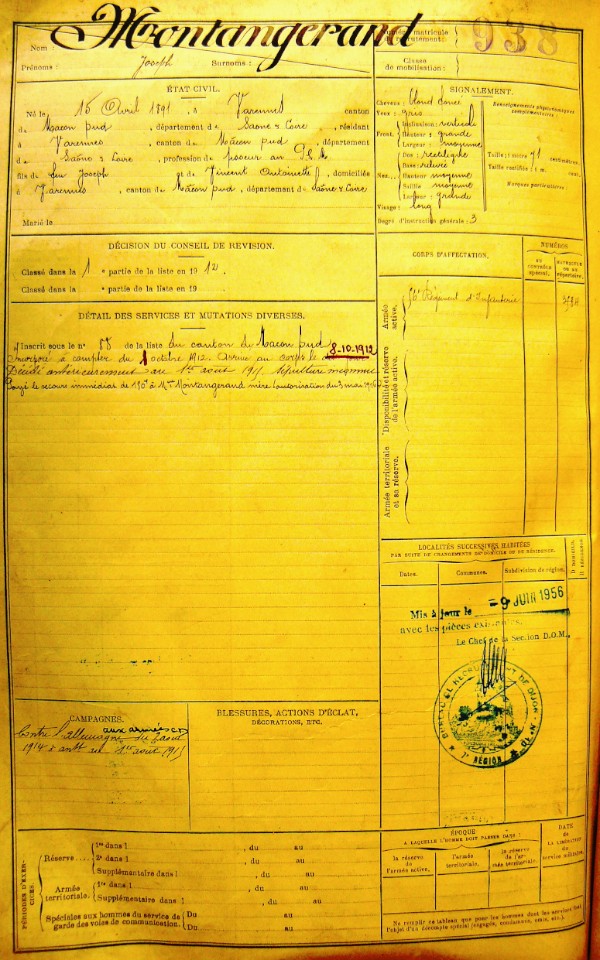 Nom : Montangerand
Numéro matricule de recrutement : 938
Prénoms : Joseph Surnoms :
Classe de mobilisation :
ÉTAT CIVIL.
Né le 15 Avril 1891, à Varennes canton
de Macon Sud, département de Saône & Loire, résidant
à Varennes, canton de Macon Sud, département
de Saône & Loire, profession de
fils de feu Joseph et de Vincent Antoinette, domiciliés
à Varennes, canton de Macon Sud, département de Saône & Loire
Marié le
SIGNALEMENT.
Cheveux : blond foncé
Renseignements physionomiques complémentaires :
Yeux : gris
Front. Inclinaison : verticale
Hauteur : grande
Largeur : moyenne
Nez. Dos : rectiligne
Base : relevée
Hauteur : moyenne
Saillie : moyenne
Largeur : grande
Taille : 1 mètre 71 centimètres.
Taille rectifiée : 1 m. cent.
Marques particulières :
Visage : long
Degré d'instruction générale : 3
DÉCISION DU CONSEIL DE REVISION.
Classé dans la 1 e partie de la liste en 1912.
Classé dans la e partie de la liste en 19
DÉTAIL DES SERVICES ET MUTATIONS DIVERSES.
Inscrit sous le n° 58 de la liste du canton de Macon Sud
Incorporé à compter du octobre 1912. Arrivé au corps le 8-10-1912
Décédé antérieurement au 1er août 1915. Sépulture inconnue
Payé le secours immédiat de 150f à Mme Montangerand mère (autorisation du 3 mai 1916)
CORPS D'AFFECTATION.
NUMÉROS
AU CONTRÔLE SPÉCIAL.
AU RÉPERTOIRE.
Armée active.
56e Régiment d'Infanterie
Disponibilité et réserve de l'armée active.
Armée territoriale et sa réserve.
LOCALITÉS SUCCESSIVES HABITÉES
PAR SUITE DE CHANGEMENTS DE DOMICILE OU DE RÉSIDENCE.
Dates. Communes. Subdivision de région.
D domicile.
R résidence.
Mis à jour le -9 JUIN 1956
avec les pièces existantes.
Le Chef de la Section D.O.M.,
7e RÉGION
CAMPAGNES.
Contre l'Allemagne aux armées du août
1914 à antr au 1er août 1915
BLESSURES, ACTIONS D'ÉCLAT,
DÉCORATIONS, ETC.
PÉRIODES D'EXERCICES.
Réserve.....
1re dans l , du au
2e dans l , du au
Supplémentaire dans l , du au
Armée territoriale.
1re dans l , du au
Supplémentaire dans l , du au
Spéciales aux hommes du service de garde des voies de communication.
Du au
Du au
ÉPOQUE
A LAQUELLE L'HOMME DOIT PASSER DANS :
la réserve de l'armée active.
l'armée territoriale.
la réserve de l'armée territoriale.
DATE DE LA LIBÉRATION du service militaire.
Ne remplir ce tableau que pour les hommes dont les services font
l'objet d'un décompte spécial (engagés, condamnés, omis, etc.).